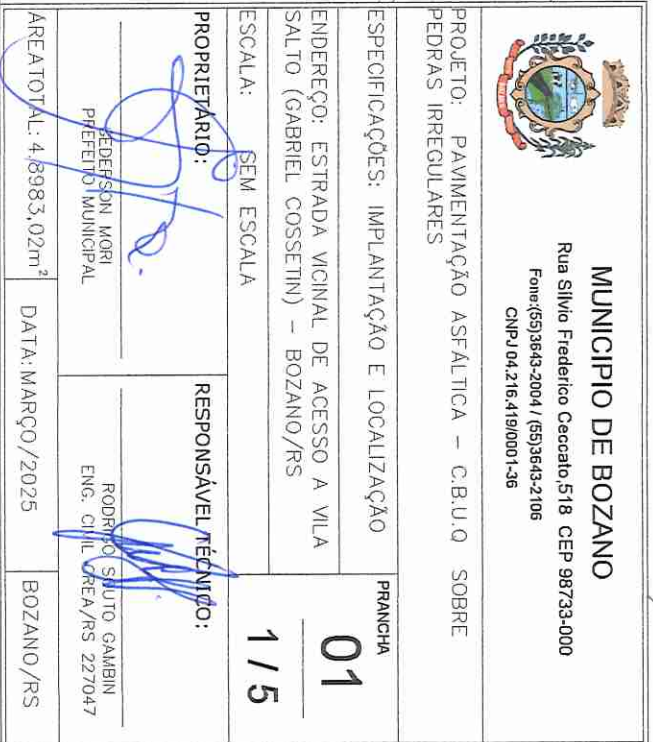 MUNICIPIO DE BOZANO
Rua Silvio Frederico Ceccato,518 CEP 98733-000
Fone:(55)3643-2004 / (55)3643-2106
CNPJ 04.216.419/0001-36
PROJETO: PAVIMENTAÇÃO ASFÁLTICA – C.B.U.Q SOBRE
PEDRAS IRREGULARES
ESPECIFICAÇÕES: IMPLANTAÇÃO E LOCALIZAÇÃO
ENDEREÇO: ESTRADA VICINAL DE ACESSO A VILA
SALTO (GABRIEL COSSETIN) – BOZANO/RS
ESCALA: SEM ESCALA
PRANCHA
01
1 / 5
PROPRIETÁRIO:
GEDERSON MORI
PREFEITO MUNICIPAL
RESPONSÁVEL TÉCNICO:
RODRIGO SOUTO GAMBIN
ENG. CIVIL CREA/RS 227047
ÁREA TOTAL: 4.8983,02m²
DATA: MARÇO/2025
BOZANO/RS